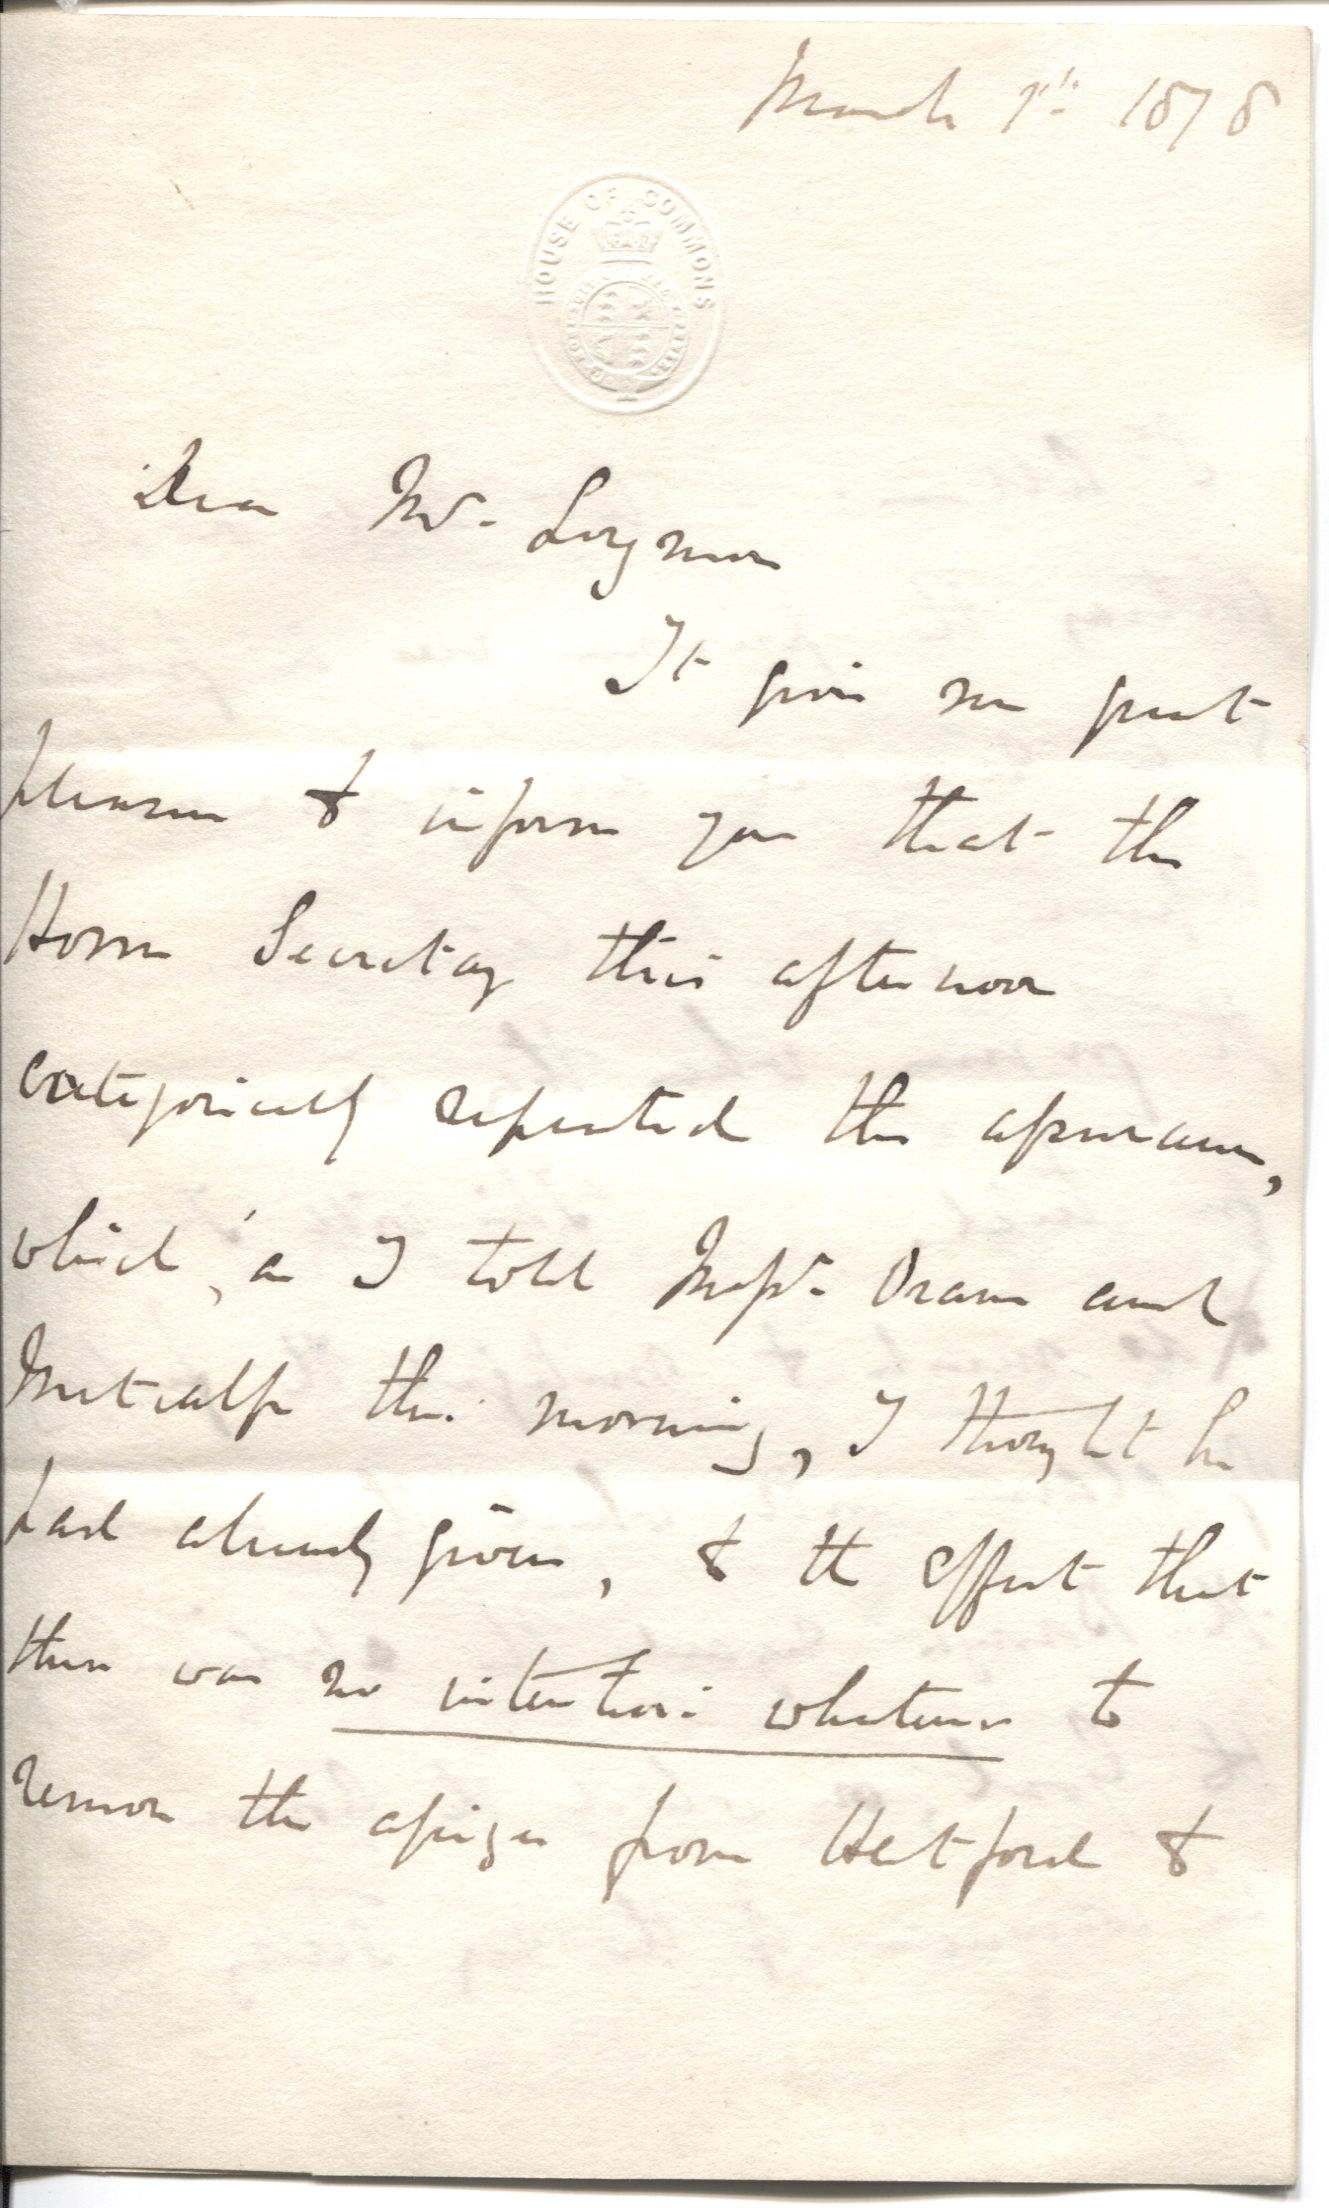 March 7th 1878
HOUSE OF COMMONS
Dear Mr. Longmore
It gives me great
pleasure to inform you that the
Home Secretary this afternoon
categorically repeated the assurance,
which, as I told Messrs. and
Metcalfe this morning, I thought he
had already given, to the effect that
there was no intention whatever to
remove the assizes from Hertford to